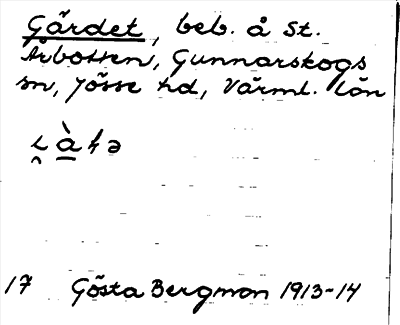 Gärdet, beb. å St.
Årbotten, Gunnarskogs
sn, Jösse hd, Värml. län
17 Gösta Bergman 1913-14